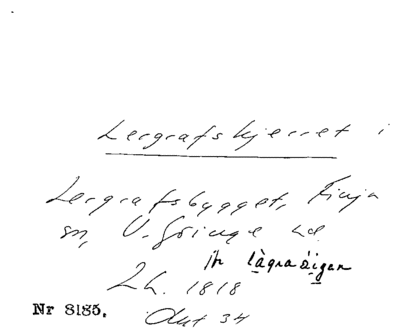 Lergrafskjerret i
Lergrafsbygget, Finja
sn, V. Göinge hd.
lägraöigan
Lh. 1818
Nr 8185. Okt 34